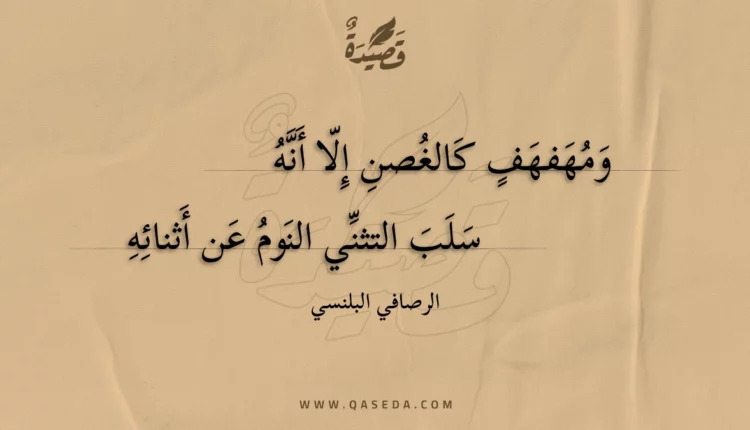 قَصِيدَةٌ
وَمُهَفهَفٍ كَالغُصنِ إِلّا أَنَّهُ
سَلَبَ التثنِّي النَومُ عَن أَثنائِهِ
الرصافي البلنسي
WWW.QASEDA.COM